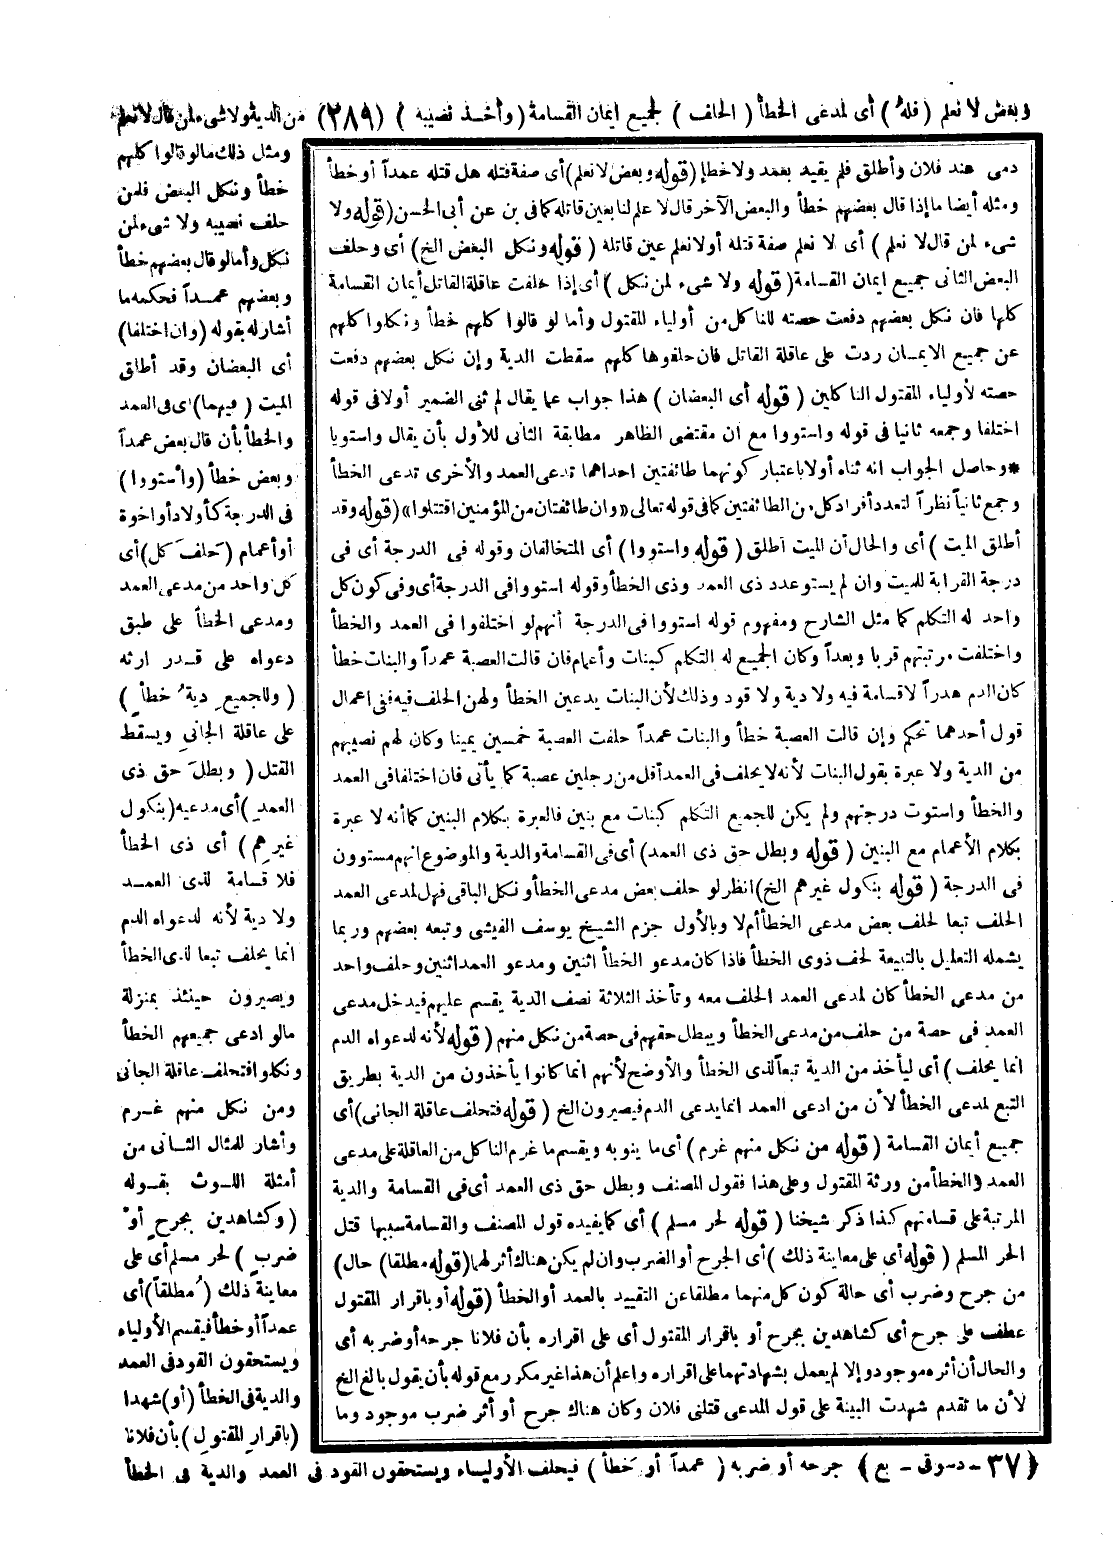 وبعض لا نعلم ( فله ) أى لمدعى الخطأ ( الحلف ) لجميع ايمان القسامة ( وأخـذ نصيبه ) (٢٨٩) من الدية ولا شىء لمن قال لا نعلم
ومثل ذلك مالو قالوا كلهم
خطأ ونكل البعض فلمن
حلف نصيبه ولا شىء لمن
نكل وأمالو قال بعضهم خطأ
وبعضهم عمـداً فحكمه ما
أشارله بقوله (وان اختلفا)
أى البعضان وقد أطلق
الميت ( فيهما) اى فى العمد
والخطأ بأن قال بعض عمداً
وبعض خطأ (واستووا)
فى الدرجة كأولاد أو اخوة
أو أعمام (حلف كل) أى
كل واحد من مدعى العمد
ومدعى الخطأ على طبق
دعواه على قـدر ارثه
( وللجميع دية خطأ )
على عاقلة الجانى ويسقط
القتل ( وبطل حق ذى
العمد ) أى مدعيه (بنكول
غيرهم ) أى ذى الخطأ
فلا قسامة لذى العمـد
ولا دية لأنه لدعواه الدم
انما يحلف تبعا لذى الخطأ
ويصيرون حينئذ بمنزلة
مالو ادعى جميعهم الخطأ
ونكلوا فتحلف عاقلة الجانى
ومن نكل منهم غـرم
وأشار للمثال الثـانى من
أمثلة اللـوث بقـوله
(وكشاهدين بجرح أو
ضرب ) لحر مسلم أى على
معاينة ذلك ( مطلقاً) أى
عمداً أو خطأ فيقسم الأولياء
ويستحقون القود فى العمد
والدية فى الخطأ (أو) شهدا
(باقرار المقتول ) بأن فلانا
دمى عند فلان وأطلق فلم يقيد بعمد ولا خطإ (قوله وبعض لا نعلم) أى صفة قتله هل قتله عمداً أو خطأ
ومثله أيضا ما إذا قال بعضهم خطأ والبعض الآخر قال لا علم لنا بعين قاتله كما فى بن عن أبى الحسن (قوله ولا
شىء لمن قال لا نعلم ) أى لا نعلم صفة قتله أو لا نعلم عين قاتله ( قوله ونكل البعض الخ) أى وحلف
البعض الثانى جميع ايمان القسامة ( قوله ولا شىء لمن نكل ) أى إذا حلفت عاقلة القاتل أيمان القسامة
كلها فان نكل بعضهم دفعت حصته للناكل من أولياء المقتول وأما لو قالوا كلهم خطأ ونكلوا كلهم
عن جميع الايمـان ردت على عاقلة القاتل فان حلفوها كلهم سقطت الدية وإن نكل بعضهم دفعت
حصته لأولياء المقتول الناكلين ( قوله أى البعضان ) هذا جواب عما يقال لم ثنى الضمير أولا فى قوله
اختلفا وجمعه ثانيا فى قوله واستووا مع ان مقتضى الظاهر مطابقة الثانى للأول بأن يقال واستويا
*وحاصل الجواب انه ثناه أولا باعتبار كونهما طائفتين احداهما تدعى العمد والأخرى تدعى الخطأ
وجمع ثانياً نظراً لتعدد أفراد كل من الطائفتين كما فى قوله تعالى «وان طائفتان من المؤمنين اقتتلوا» (قوله وقد
أطلق الميت ) أى والحال أن الميت أطلق ( قوله واستووا ) أى المتخالفان وقوله فى الدرجة أى فى
درجة القرابة للميت وان لم يستو عدد ذى العمد وذى الخطأ وقوله استووا فى الدرجة أى وفى كون كل
واحد له التكلم كما مثل الشارح ومفهوم قوله استووا فى الدرجة أنهم لو اختلفوا فى العمد والخطأ
واختلفت مرتبتهم قربا وبعداً وكان الجميع له التكلم كبنات وأعمام فان قالت العصبة عمداً والبنات خطأ
كان الدم هدراً لا قسامة فيه ولا دية ولا قود وذلك لأن البنات يدعين الخطأ ولهن الحلف فيه ففى اعمال
قول أحدهما تحكم وإن قالت العصبة خطأ والبنات عمداً حلفت العصبة خمسين يمينا وكان لهم نصيبهم
من الدية ولا عبرة بقول البنات لأنه لا يحلف فى العمد أقل من رجلين عصبة كما يأتى فان اختلفا فى العمد
والخطأ واستوت درجتهم ولم يكن للجميع التكلم كبنات مع بنين فالعبرة بكلام البنين كما أنه لا عبرة
بكلام الأعمام مع البنين ( قوله وبطل حق ذى العمد) أى فى القسامة والدية والموضوع انهم مستوون
فى الدرجة ( قوله بنكول غيرهم الخ) انظر لو حلف بعض مدعى الخطأ ونكل الباقى فهل لمدعى العمد
الحلف تبعا لحلف بعض مدعى الخطأ أم لا وبالأول جزم الشيخ يوسف الفيشى وتبعه بعضهم وربما
يشمله التعليل بالتبعية لحلف ذوى الخطأ فاذا كان مدعو الخطأ اثنين ومدعو العمد اثنين وحلف واحد
من مدعى الخطأ كان لمدعى العمد الحلف معه وتأخذ الثلاثة نصف الدية يقسم عليهم فيدخل مدعى
العمد فى حصة من حلف من مدعى الخطأ ويبطل حقهم فى حصة من نكل منهم ( قوله لأنه لدعواه الدم
انما يحلف ) أى ليأخذ من الدية تبعاً لذى الخطأ والأوضح لأنهم انما كانوا يأخذون من الدية بطريق
التبع لمدعى الخطأ لأن من ادعى العمد انما يدعى الدم فيصيرون الخ ( قوله فتحلف عاقلة الجانى) أى
جميع أيمان القسامة ( قوله من نكل منهم غرم ) أى ما ينوبه ويقسم ما غرم الناكل من العاقلة على مدعى
العمد والخطأ من ورثة المقتول وعلى هذا فقول المصنف وبطل حق ذى العمد أى فى القسامة والدية
المرتبة على قسامتهم كذا ذكر شيخنا ( قوله لحر مسلم ) أى كما يفيده قول المصنف والقسامة سببها قتل
الحر المسلم ( قوله أى على معاينة ذلك ) أى الجرح أو الضرب وان لم يكن هناك أثر لهما (قوله مطلقا) حال)
من جرح وضرب أى حالة كون كل منهما مطلقا عن التقييد بالعمد أو الخطأ (قوله أو باقرار المقتول
عطف على جرح أى كشاهدين بجرح أو باقرار المقتول أى على اقراره بأن فلانا جرحه أو ضربه أى
والحال أن أثره موجود وإلا لم يعمل بشهادتهما على اقراره واعلم أن هذا غير مكرر مع قوله بأن يقول بالغ الخ
لأن ما تقدم شهدت البينة على قول المدعى قتلنى فلان وكان هناك جرح أو أثر ضرب موجود وما
(٣٧ - دسوقى - بع) جرحه أو ضربه ( عمداً أو خطأ ) فيحلف الأوليـاء ويستحقون القود فى العمد والدية فى الخطأ